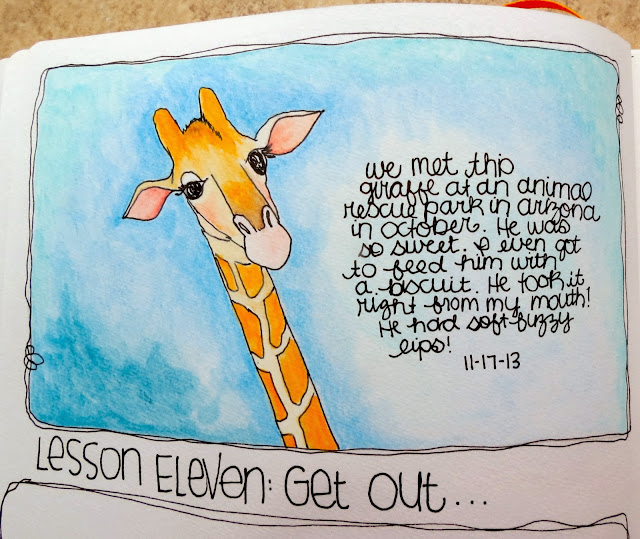 we met this
giraffe at an animal
rescue park in arizona
in october. He was
so sweet. I even got
to feed him with
a biscuit. He took it
right from my mouth!
He had soft fuzzy
lips!
11-17-13
Lesson Eleven: Get Out...